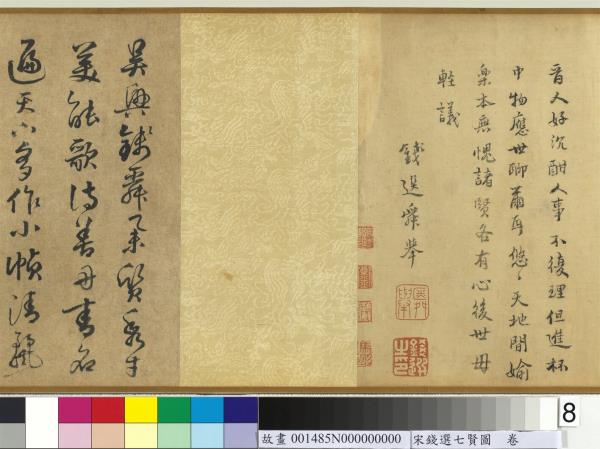 晉人好沉酣人事不復理但進杯
中物應世聊爾耳悠〻天地間媮
樂本無愧諸賢各有心後世毋
輕議
錢選舜舉
錢選之印
吳興錢舜舉賢秀才
美能歌詩善丹青名
遍天下多作小幀清麗
8
故畫 001485N000000000
宋錢選七賢圖 卷